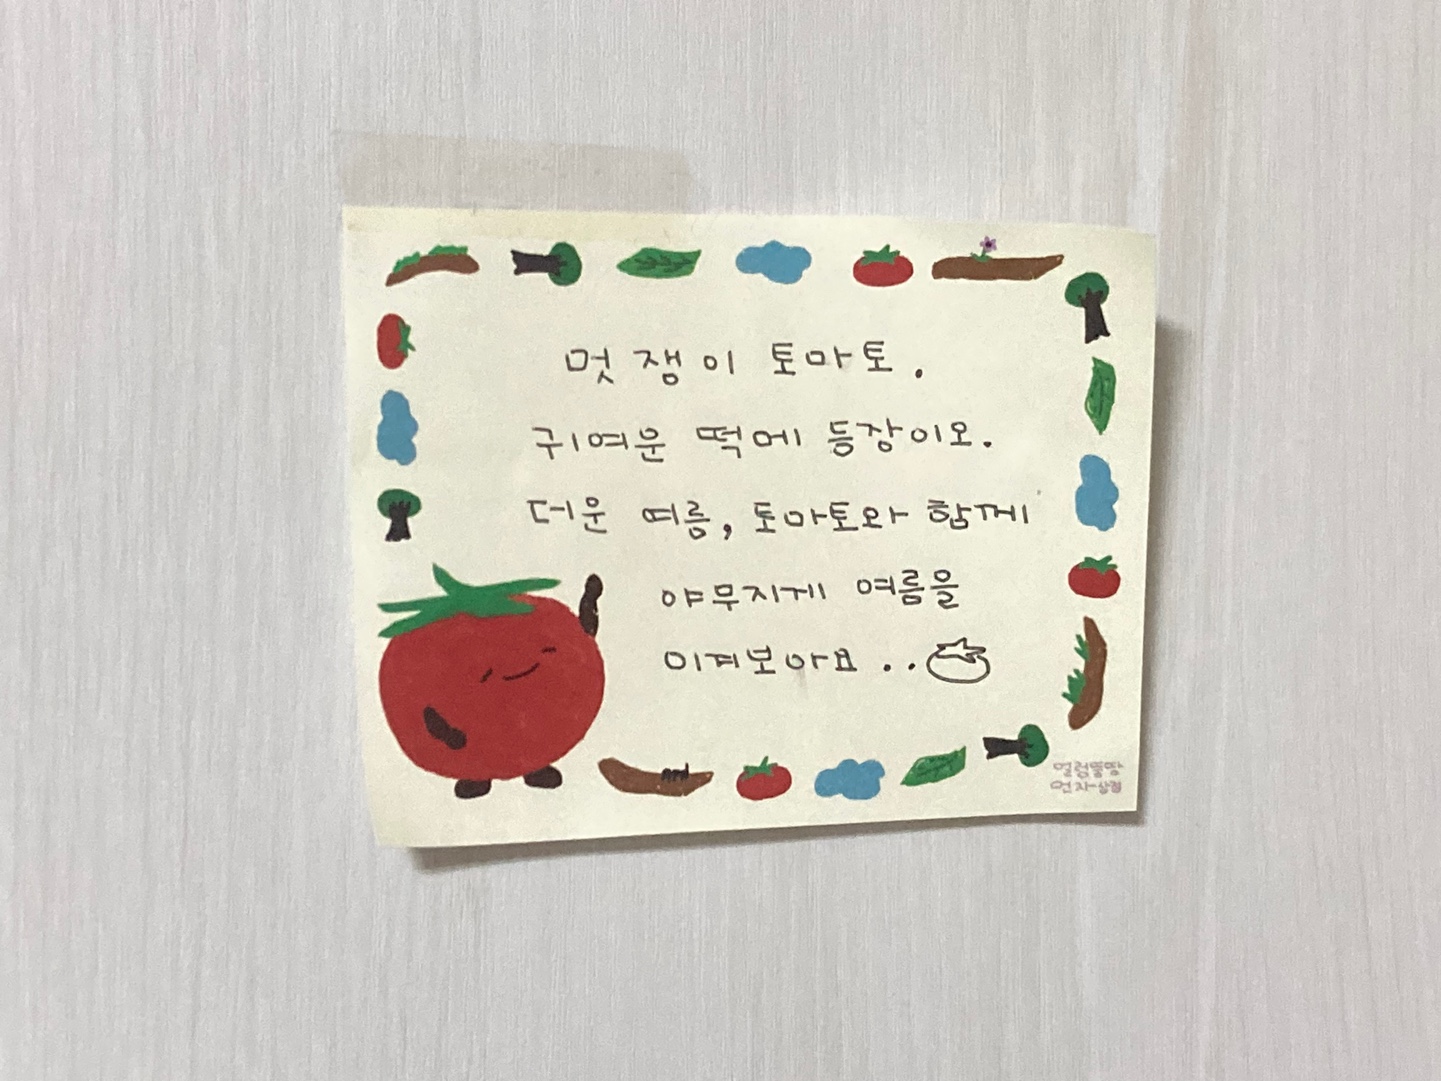 멋쟁이 토마토.
귀여운 떡에 등장이오.
더운 여름, 토마토와 함께
야무지게 여름을
이겨보아요 ..
문자상점